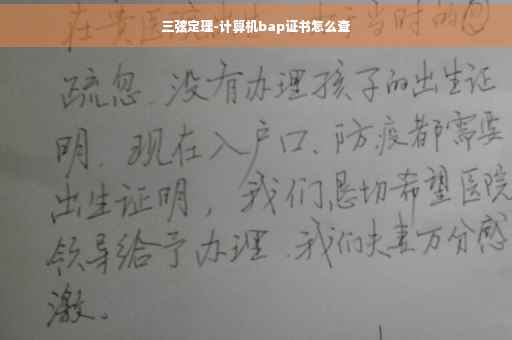 三弦定理-计算机bap证书怎么查
在贵医院 当时的
疏忽.没有办理孩子的出生证
明.现在入户口、防疫都需要
出生证明，我们恳切希望医院
领导给予办理.我们夫妻万分感
激。